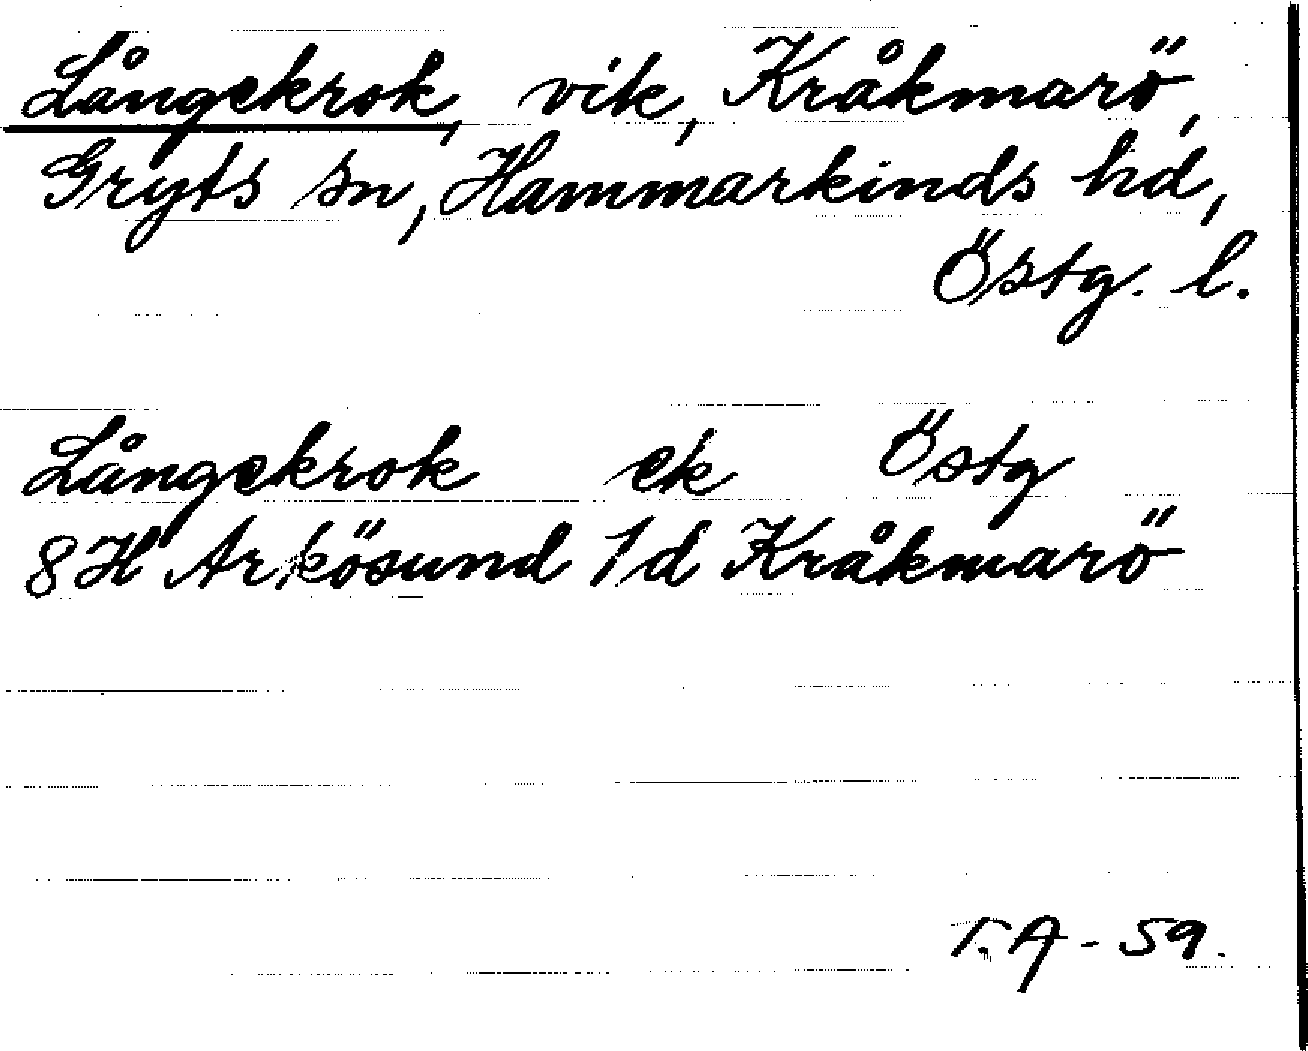 Långekrok, vik, Kråkmarö,
Gryts sn, Hammarkinds hd,
Östg. l.
Långekrok ek Östg
8H Arkösund 1d Kråkmarö
T.A - 59.